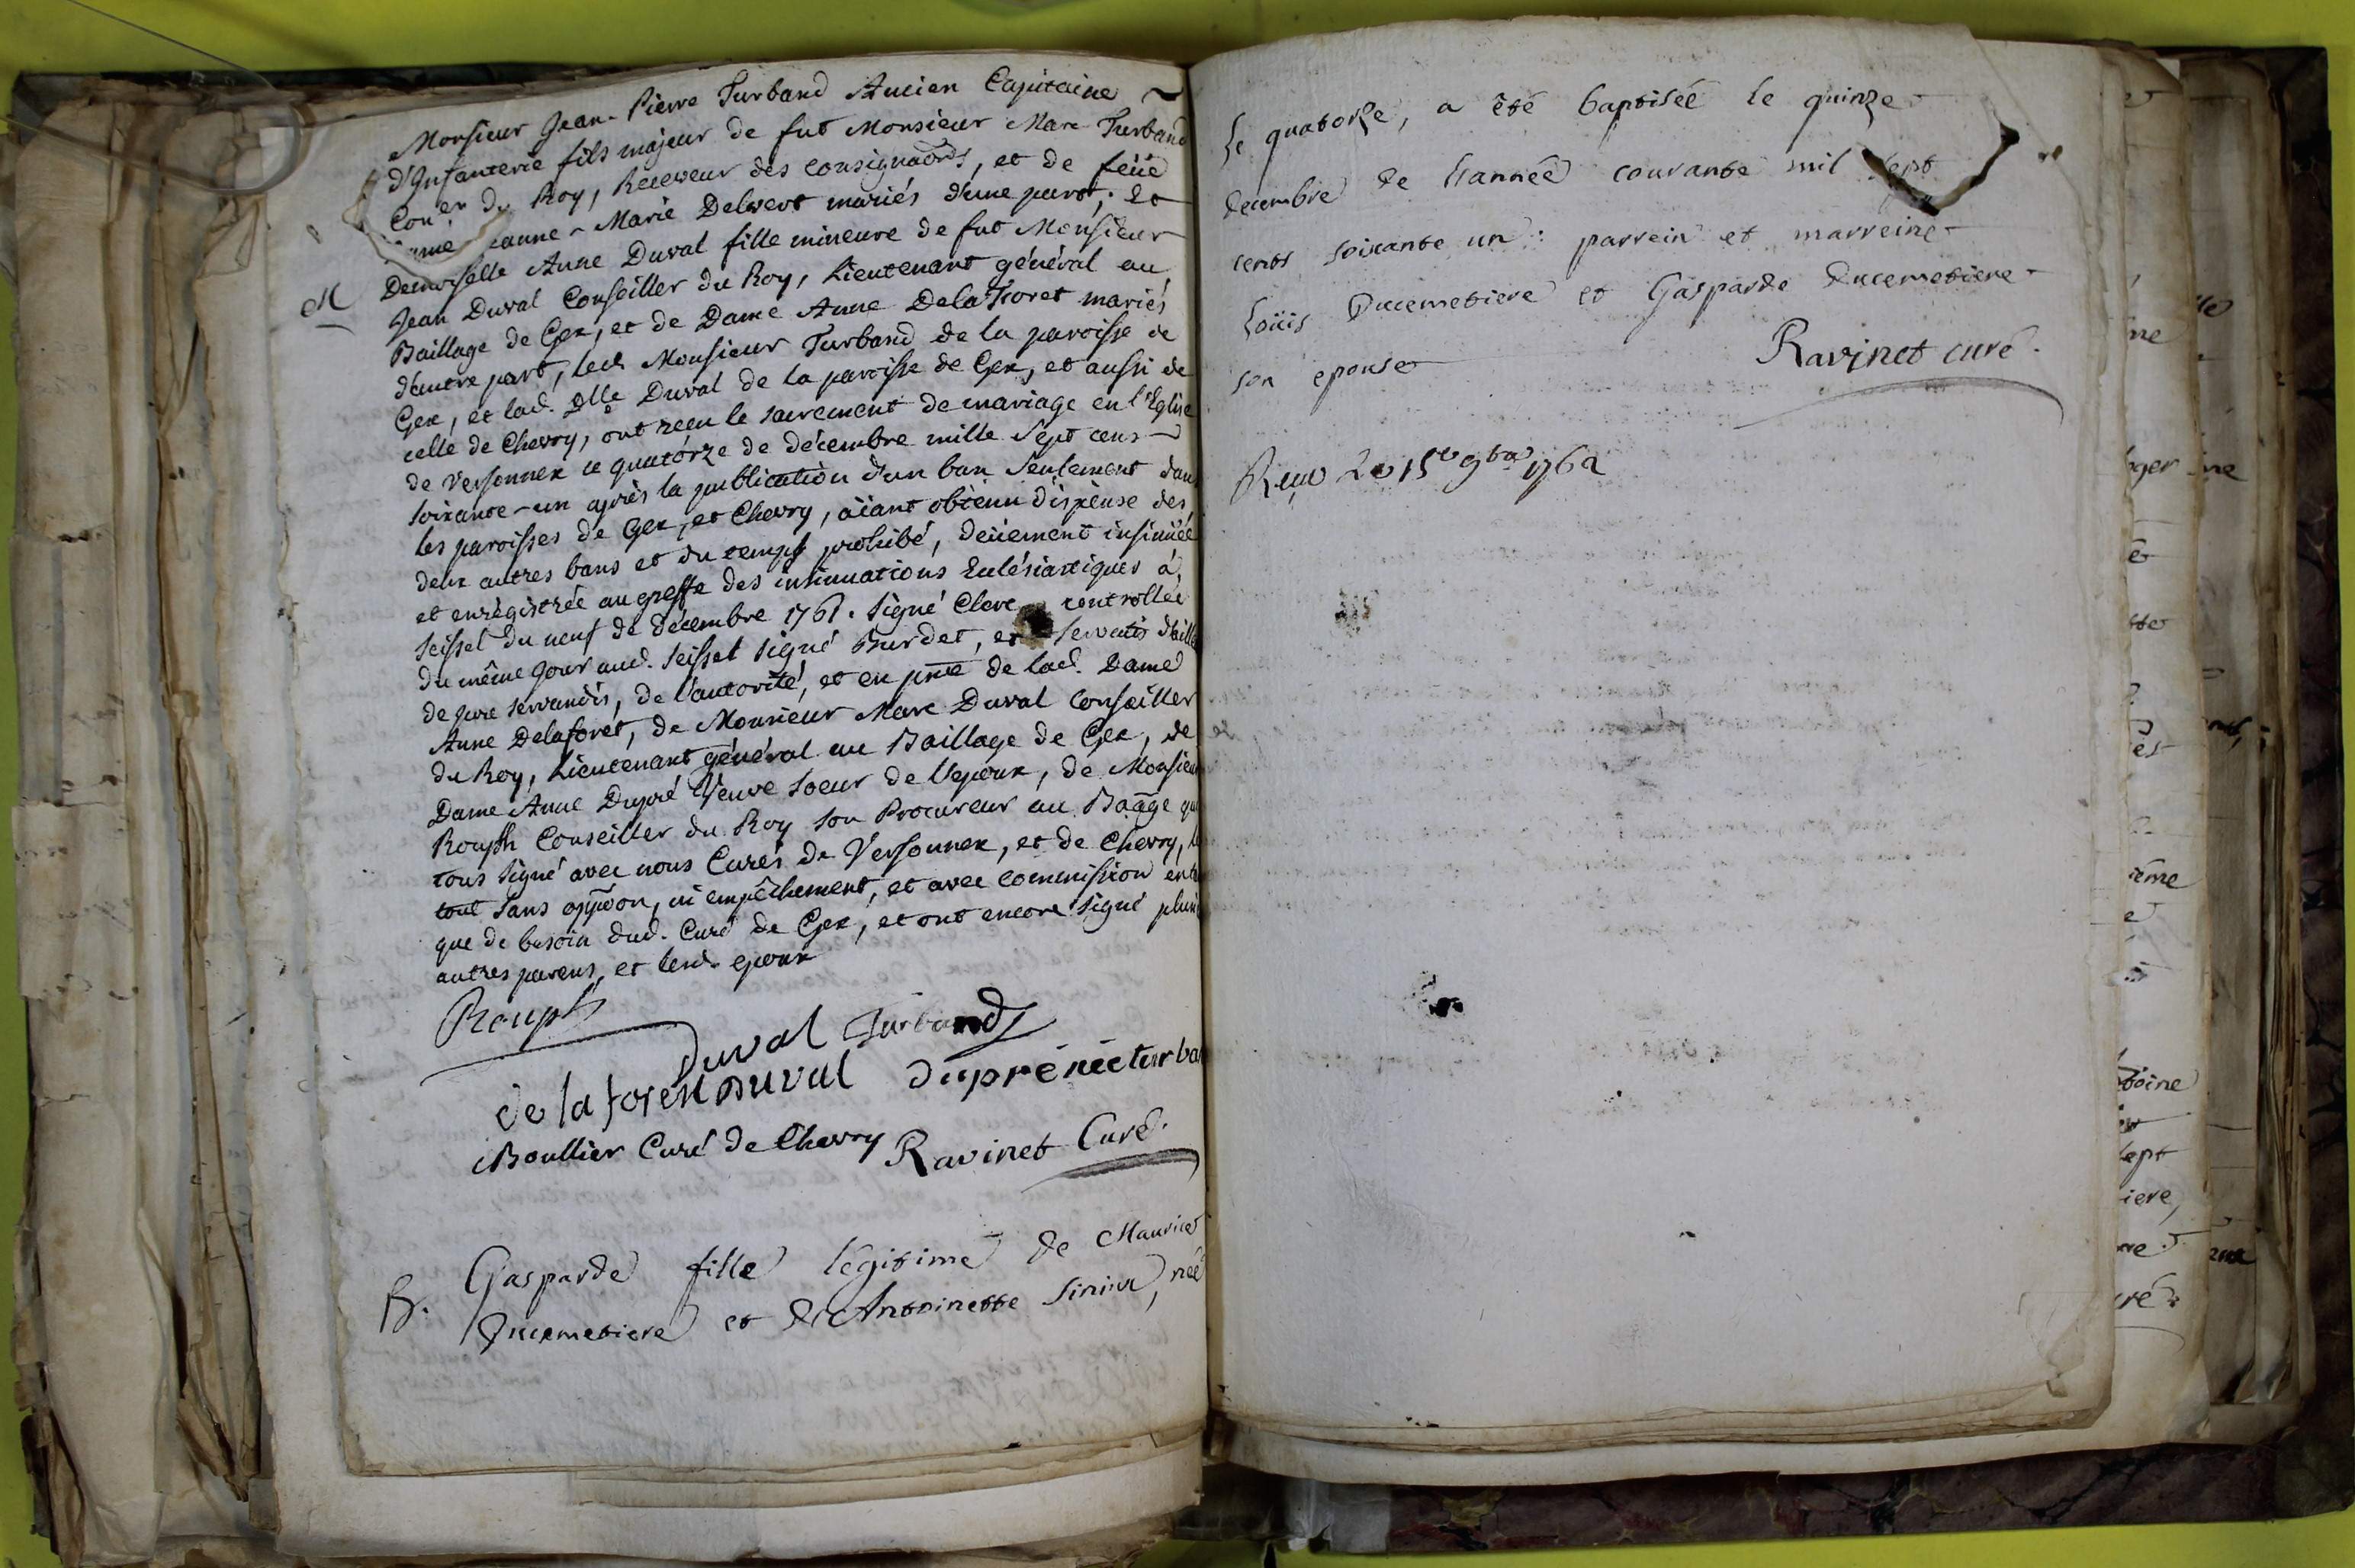 Monsieur Jean-Pierre Turband Ancien Capitaine
d'Infanterie fils majeur de fut Monsieur Marc Turband
Con.er du Roy, Receveur des consignaōns, et de feüe
Dame Jeanne-Marie Delwert mariés d'une part, et
Demoiselle Anne Duval fille mineure de fut Monsieur
M
Jean Duval Conseiller du Roy, Lieutenant général au
Baillage de Gex, et de Dame Anne Delaforet mariés
d'autre part, led. Monsieur Turband de la paroisse de
Gex, et lad. Dlle Duval de la paroisse de Gex, et aussi de
celle de Chevry, ont reçu le sacrement de mariage en l'Eglise
de Versonnex ce quatorze de décembre mille Sept cens
soixante-un après la publication d'un ban seulement dans
les paroisses de Gex, et Chevry, aïant obtenu dispense des
deux autres bans et du temps prohibé, deüement insinuée
et enrégistrée au greffe des insinuations Eclésiastiques à
Seissel du neuf de décembre 1761. signé Clerc, controllée
du même jour aud. Seissel signé Burdet, et servatis d'aille
de jure servandis, de l'autorité, et en pnte de lad. Dame
Anne Delaforet, de Monsieur Marc Duval Conseiller
du Roy, Lieutenant général au Baillage de Gex, de
Dame Anne Dupré Veuve soeur de l'epoux, de Monsieur
Rouph Conseiller du Roy son Procureur au Baāge qui
tous signé avec nous Curés de Versonnex, et de Chevry, le
tout sans oppōon, ni empêchement, et avec commission en tant
que de besoin dud. Curé de Gex, et ont encore signé plusi
autres parens, et lesd. epoux
Rouph
Duval Turband
de la forest Duval dupré néé turban
Boullier Curé de Chevry Ravinet Curé.
B. Gasparde fille légitime de Maurice
Ducemetiere et d'Antoinette, néé
le quatorze, a été baptisée le quinze
decembre de l'année courante mil sept
cents soixante un: parrein et marreine
Loüis Ducemetiere et Gasparde Ducemetiere
son epouse
Ravinet curé.
Reçu le 15e 9bre 1762